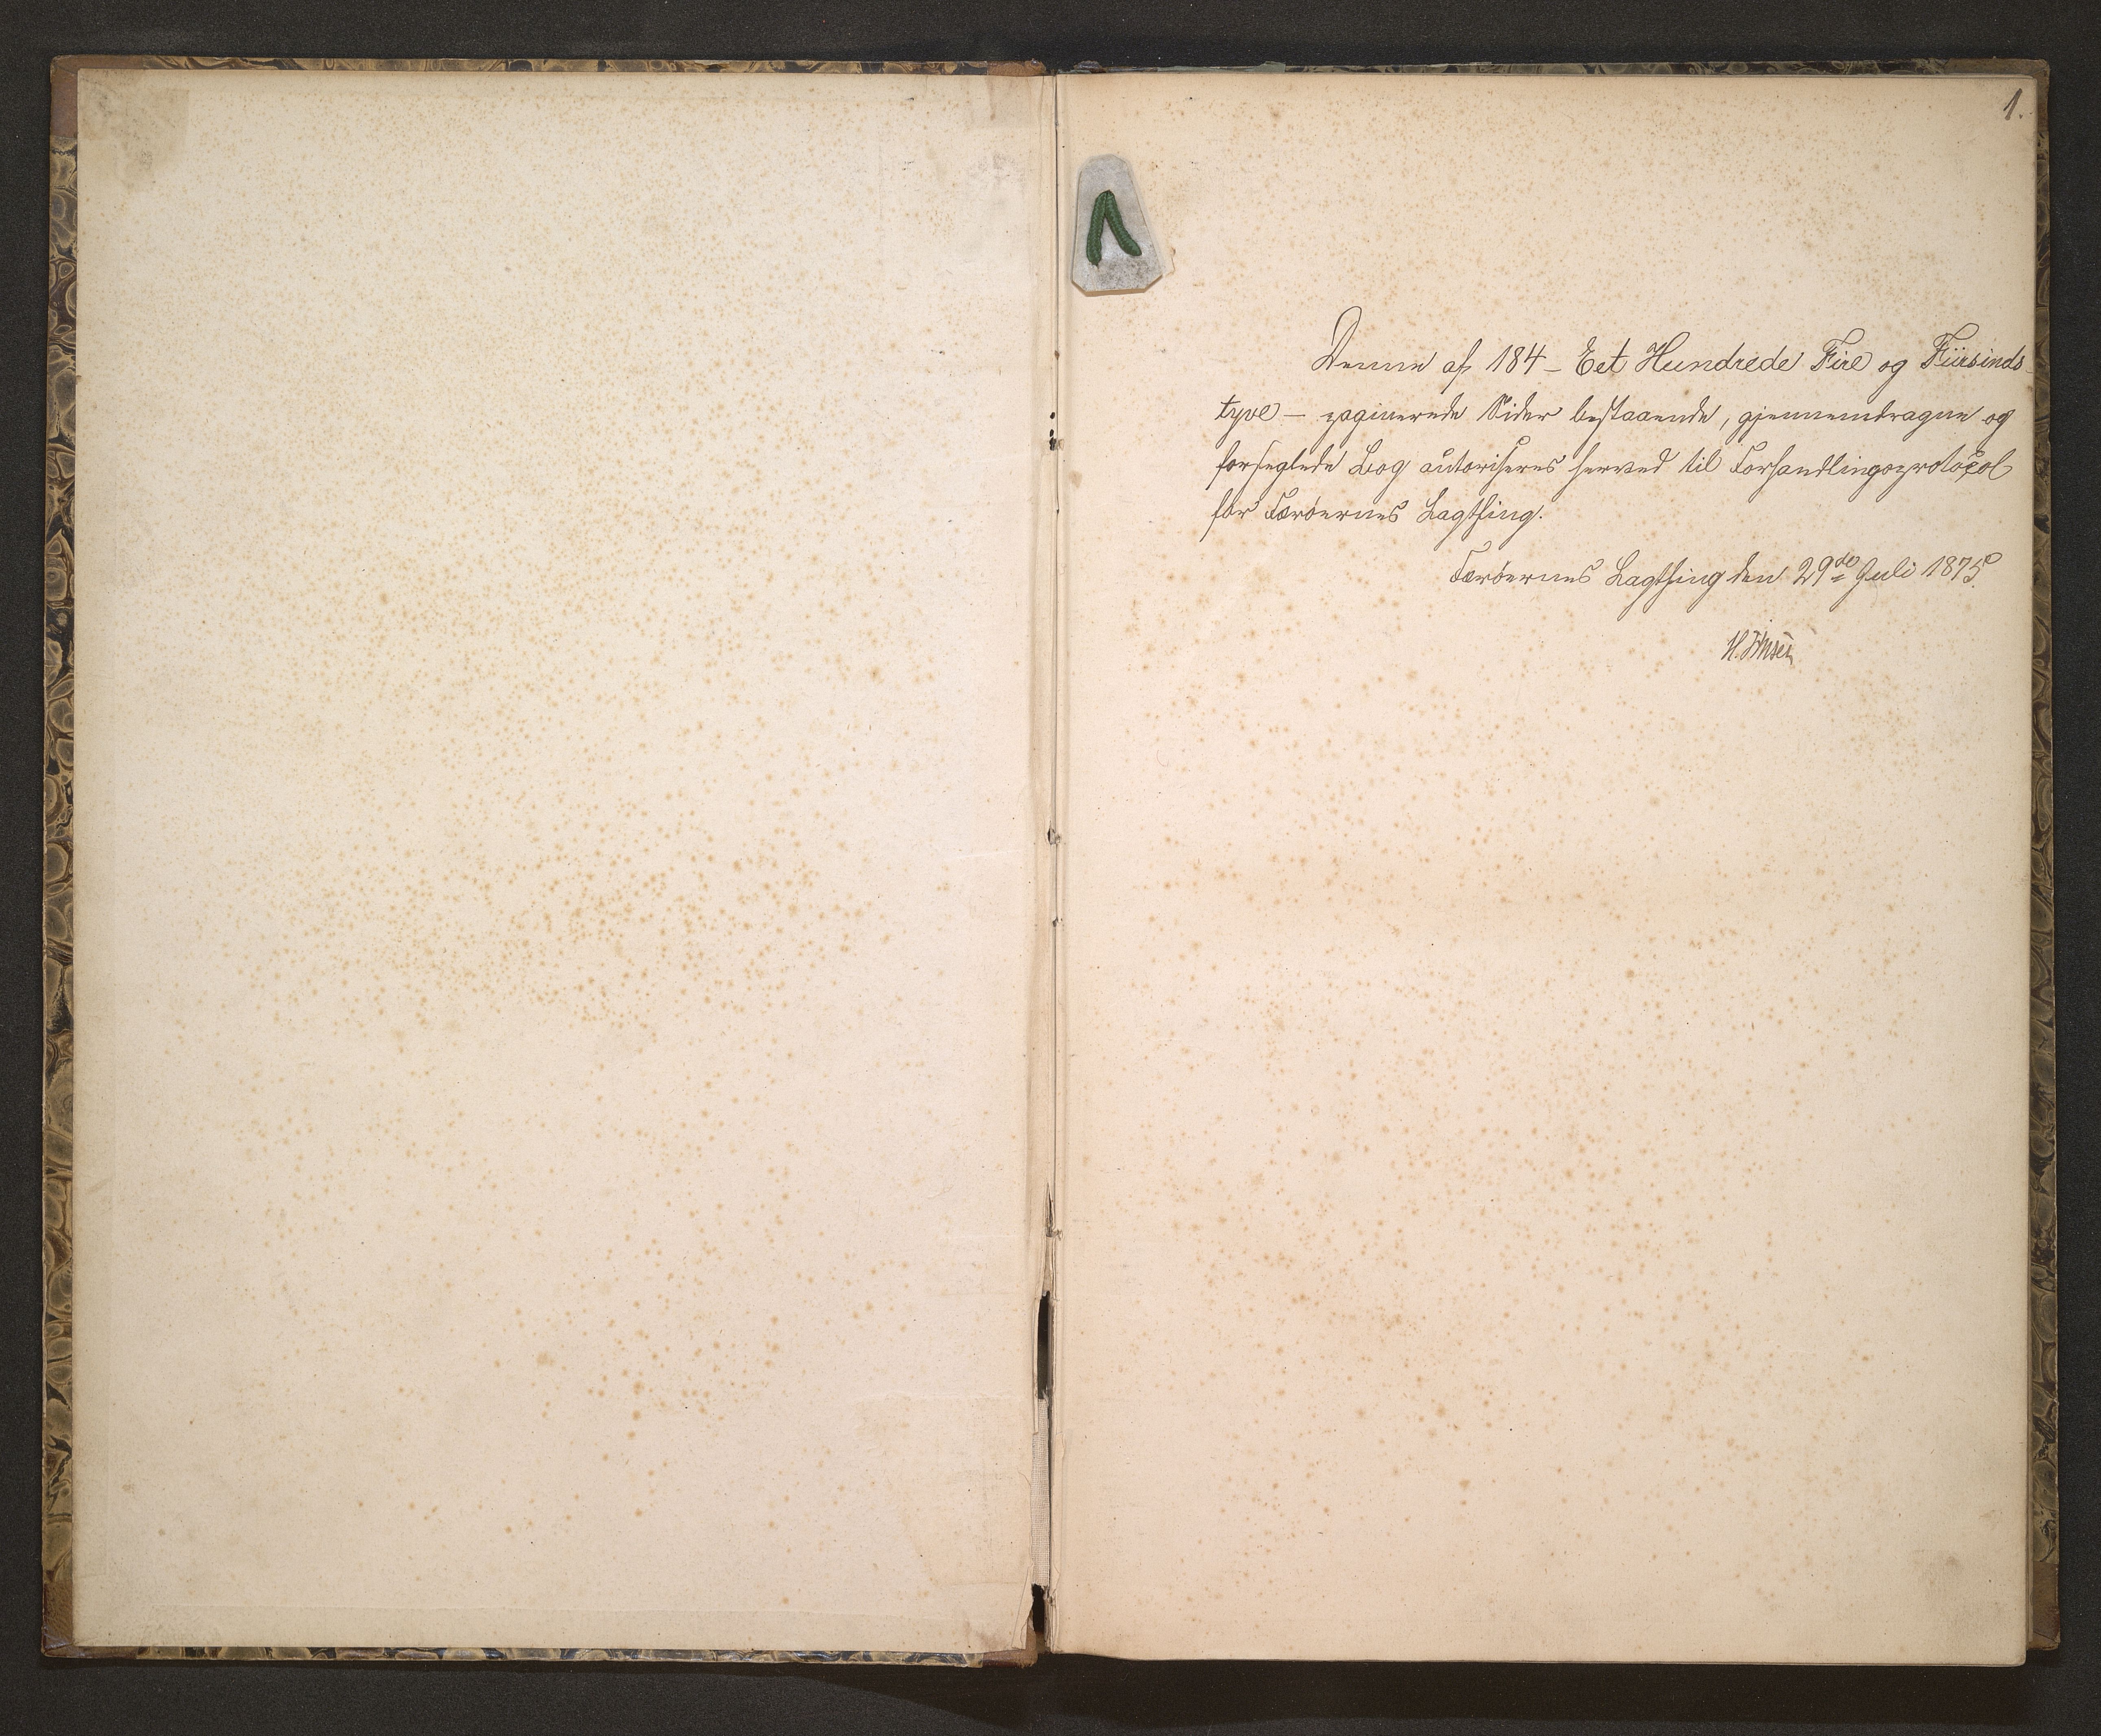 1.
Denne af 184 - Eet Hundrede Fire og Fiirsinds-
tyve - paginerede Sider bestaaende, gjennemdragne og
forseglede Bog autoriseres herved til Forhandlingsprotocol
for Færöernes Lagthing.
Færöernes Lagthing den 29de Juli 1875.